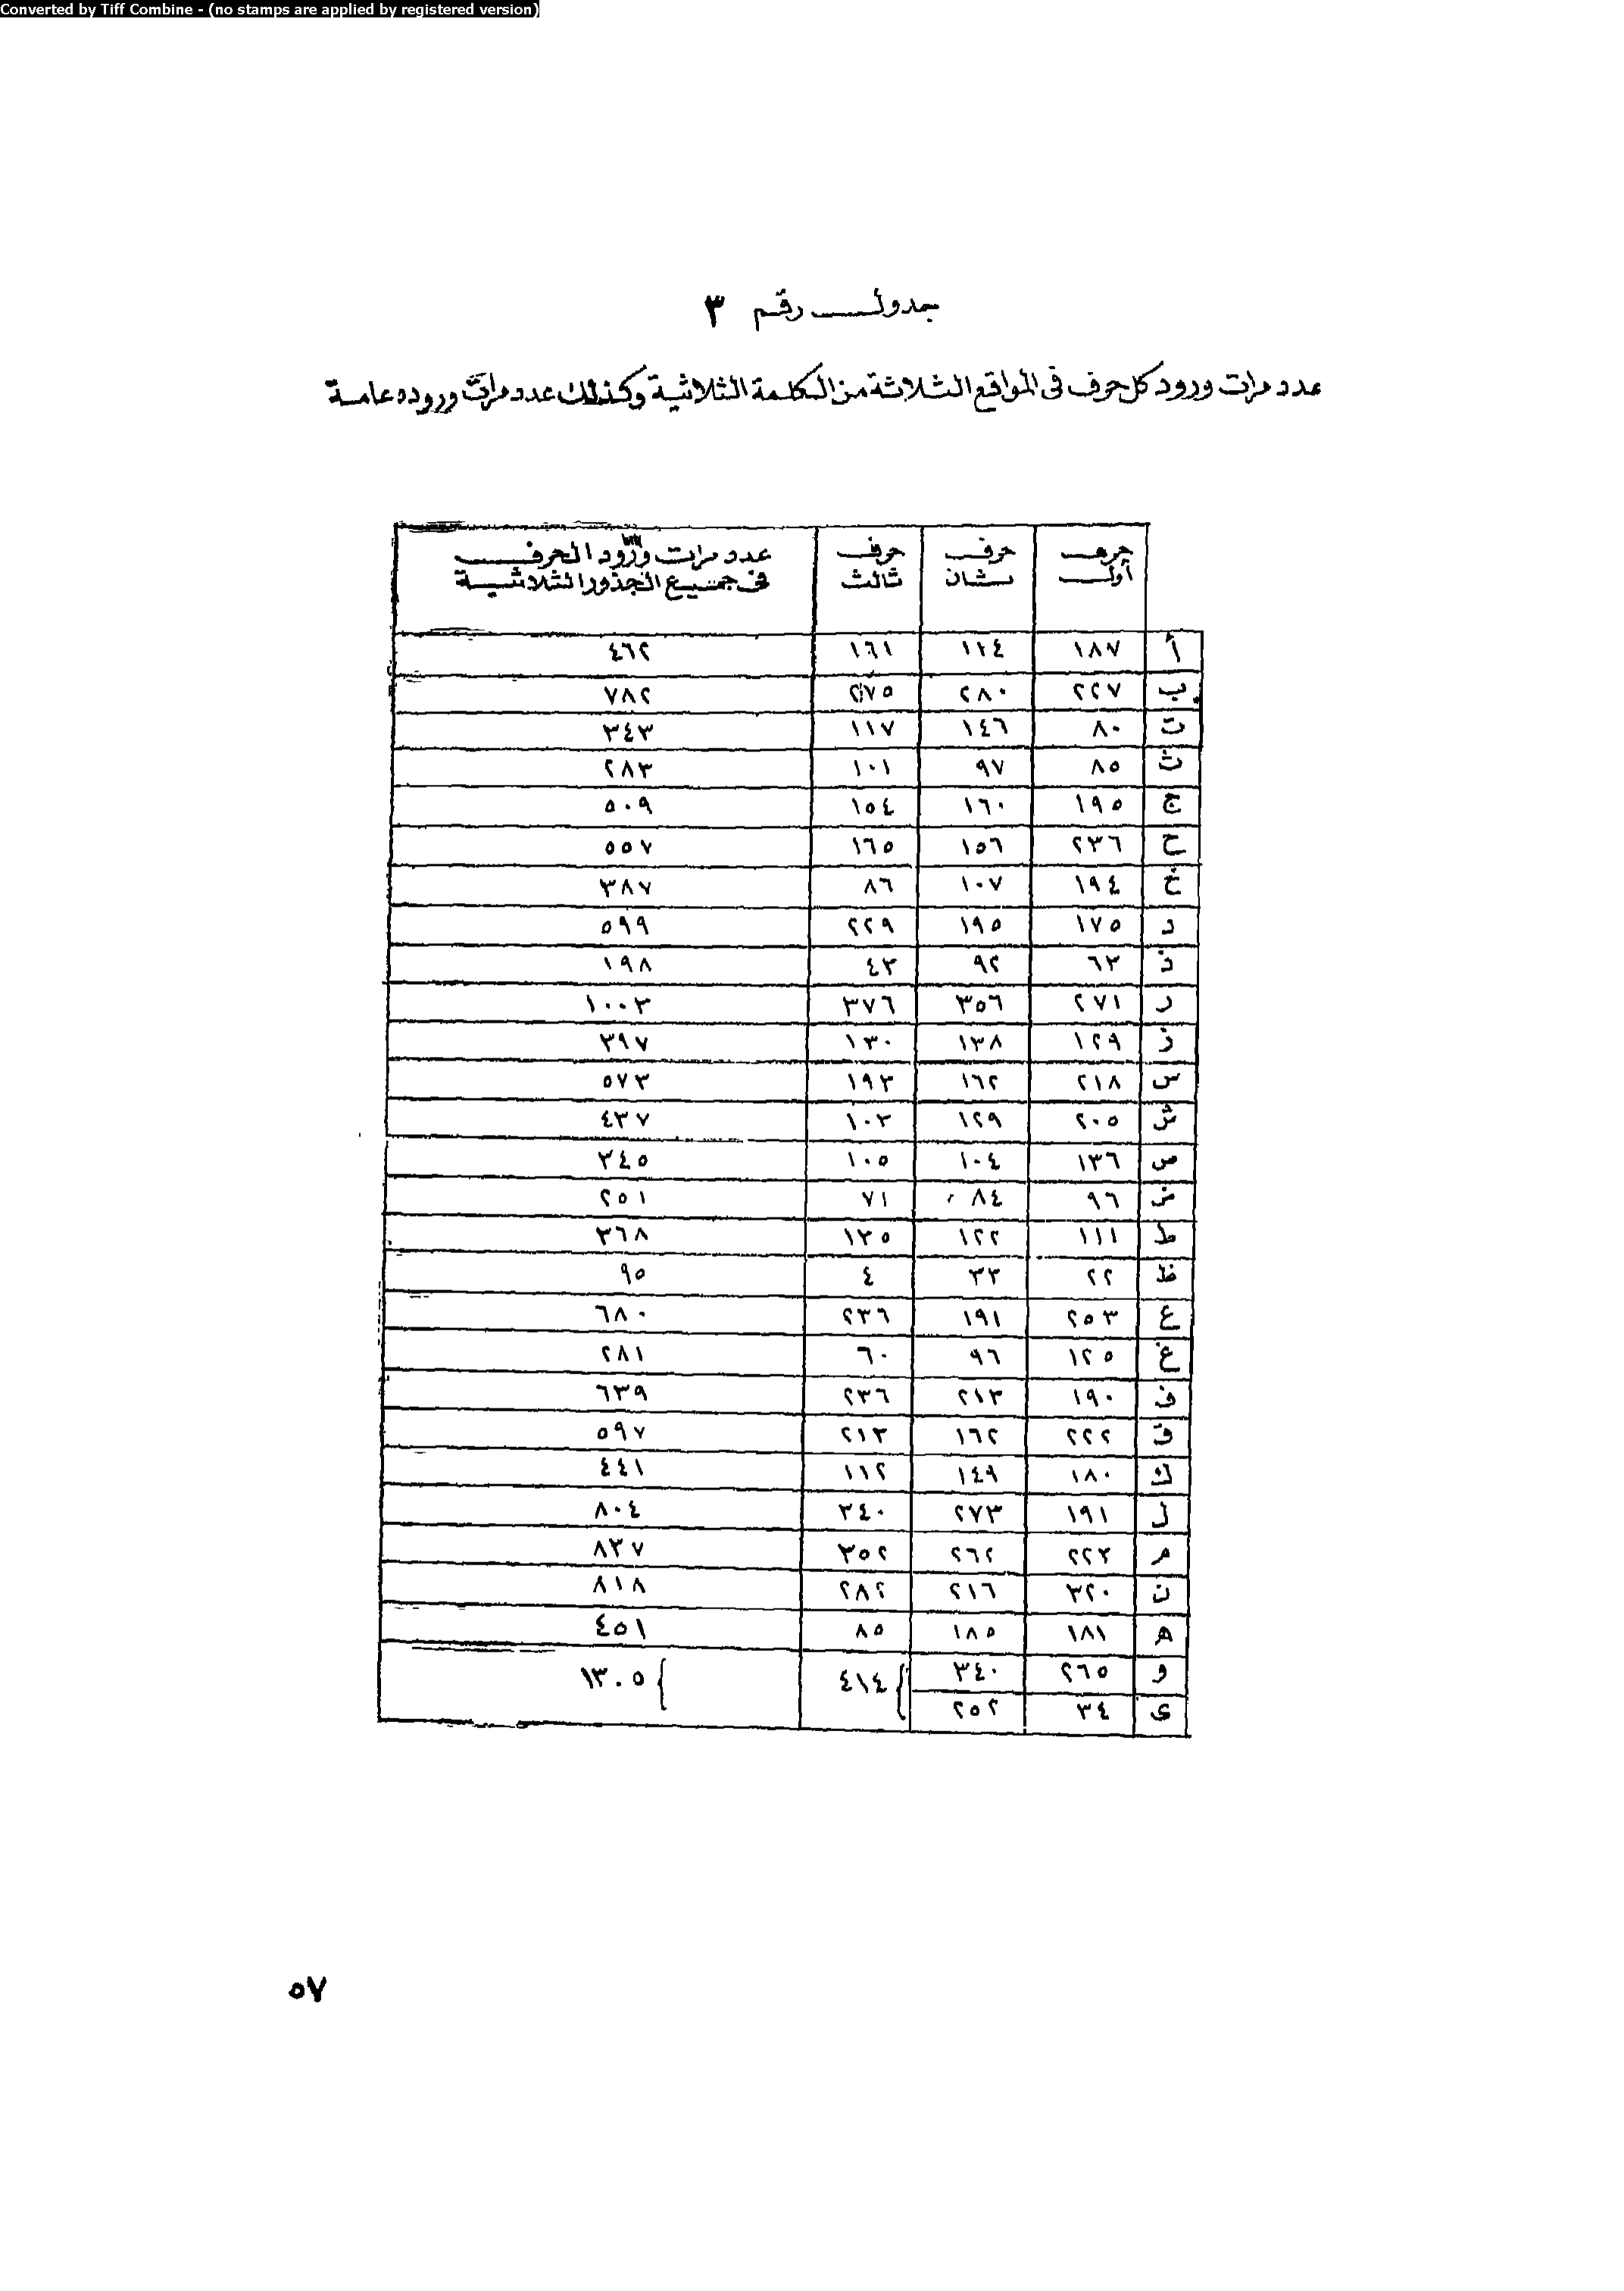 Converted by Tiff Combine - (no stamps are applied by registered version)
جدول رقم ٣
عدد مرات ورود كل حرف فى المواقع الثلاثة من الكلمة الثلاثية وكذلك عدد مرات وروده عامة
حرف أول حرف ثان حرف ثالث عدد مرات ورود الحرف فى جميع الجذور الثلاثية
أ ١٨٧ ١١٤ ١٦١ ٤٦٢
ب ٢٢٧ ٢٨٠ ٢٧٥ ٧٨٢
ت ٨٠ ١٤٦ ١١٧ ٣٤٣
ث ٨٥ ٩٧ ١٠١ ٢٨٣
ج ١٩٥ ١٦٠ ١٥٤ ٥٠٩
ح ٢٣٦ ١٥٦ ١٦٥ ٥٥٧
خ ١٩٤ ١٠٧ ٨٦ ٣٨٧
د ١٧٥ ١٩٥ ٢٢٩ ٥٩٩
ذ ٦٣ ٩٢ ٤٣ ١٩٨
ر ٢٧١ ٣٥٦ ٣٧٦ ١٠٠٣
ز ١٢٩ ١٣٨ ١٣٠ ٣٩٧
س ٢١٨ ١٦٢ ١٩٣ ٥٧٣
ش ٢٠٥ ١٢٩ ١٠٣ ٤٣٧
ص ١٣٦ ١٠٤ ١٠٥ ٣٤٥
ض ٩٦ ٨٤ ٧١ ٢٥١
ط ١١١ ١٢٢ ١٣٥ ٣٦٨
ظ ٢٢ ٣٣ ٤ ٩٥
ع ٢٥٣ ١٩١ ٢٣٦ ٦٨٠
غ ١٢٥ ٩٦ ٦٠ ٢٨١
ف ١٩٠ ٢١٣ ٢٣٦ ٦٣٩
ق ٢٢٢ ١٦٢ ٢١٣ ٥٩٧
ك ١٨٠ ١٤٩ ١١٢ ٤٤١
ل ١٩١ ٢٧٣ ٣٤٠ ٨٠٤
م ٢٢٣ ٢٦٢ ٣٥٢ ٨٣٧
ن ٣٢٠ ٢١٦ ٢٨٢ ٨١٨
ه ١٨١ ١٨٥ ٨٥ ٤٥١
و ٢٦٥ ٣٤٠ ٤١٤ ١٣٠٥
ى ٣٤ ٢٥٢
٥٧